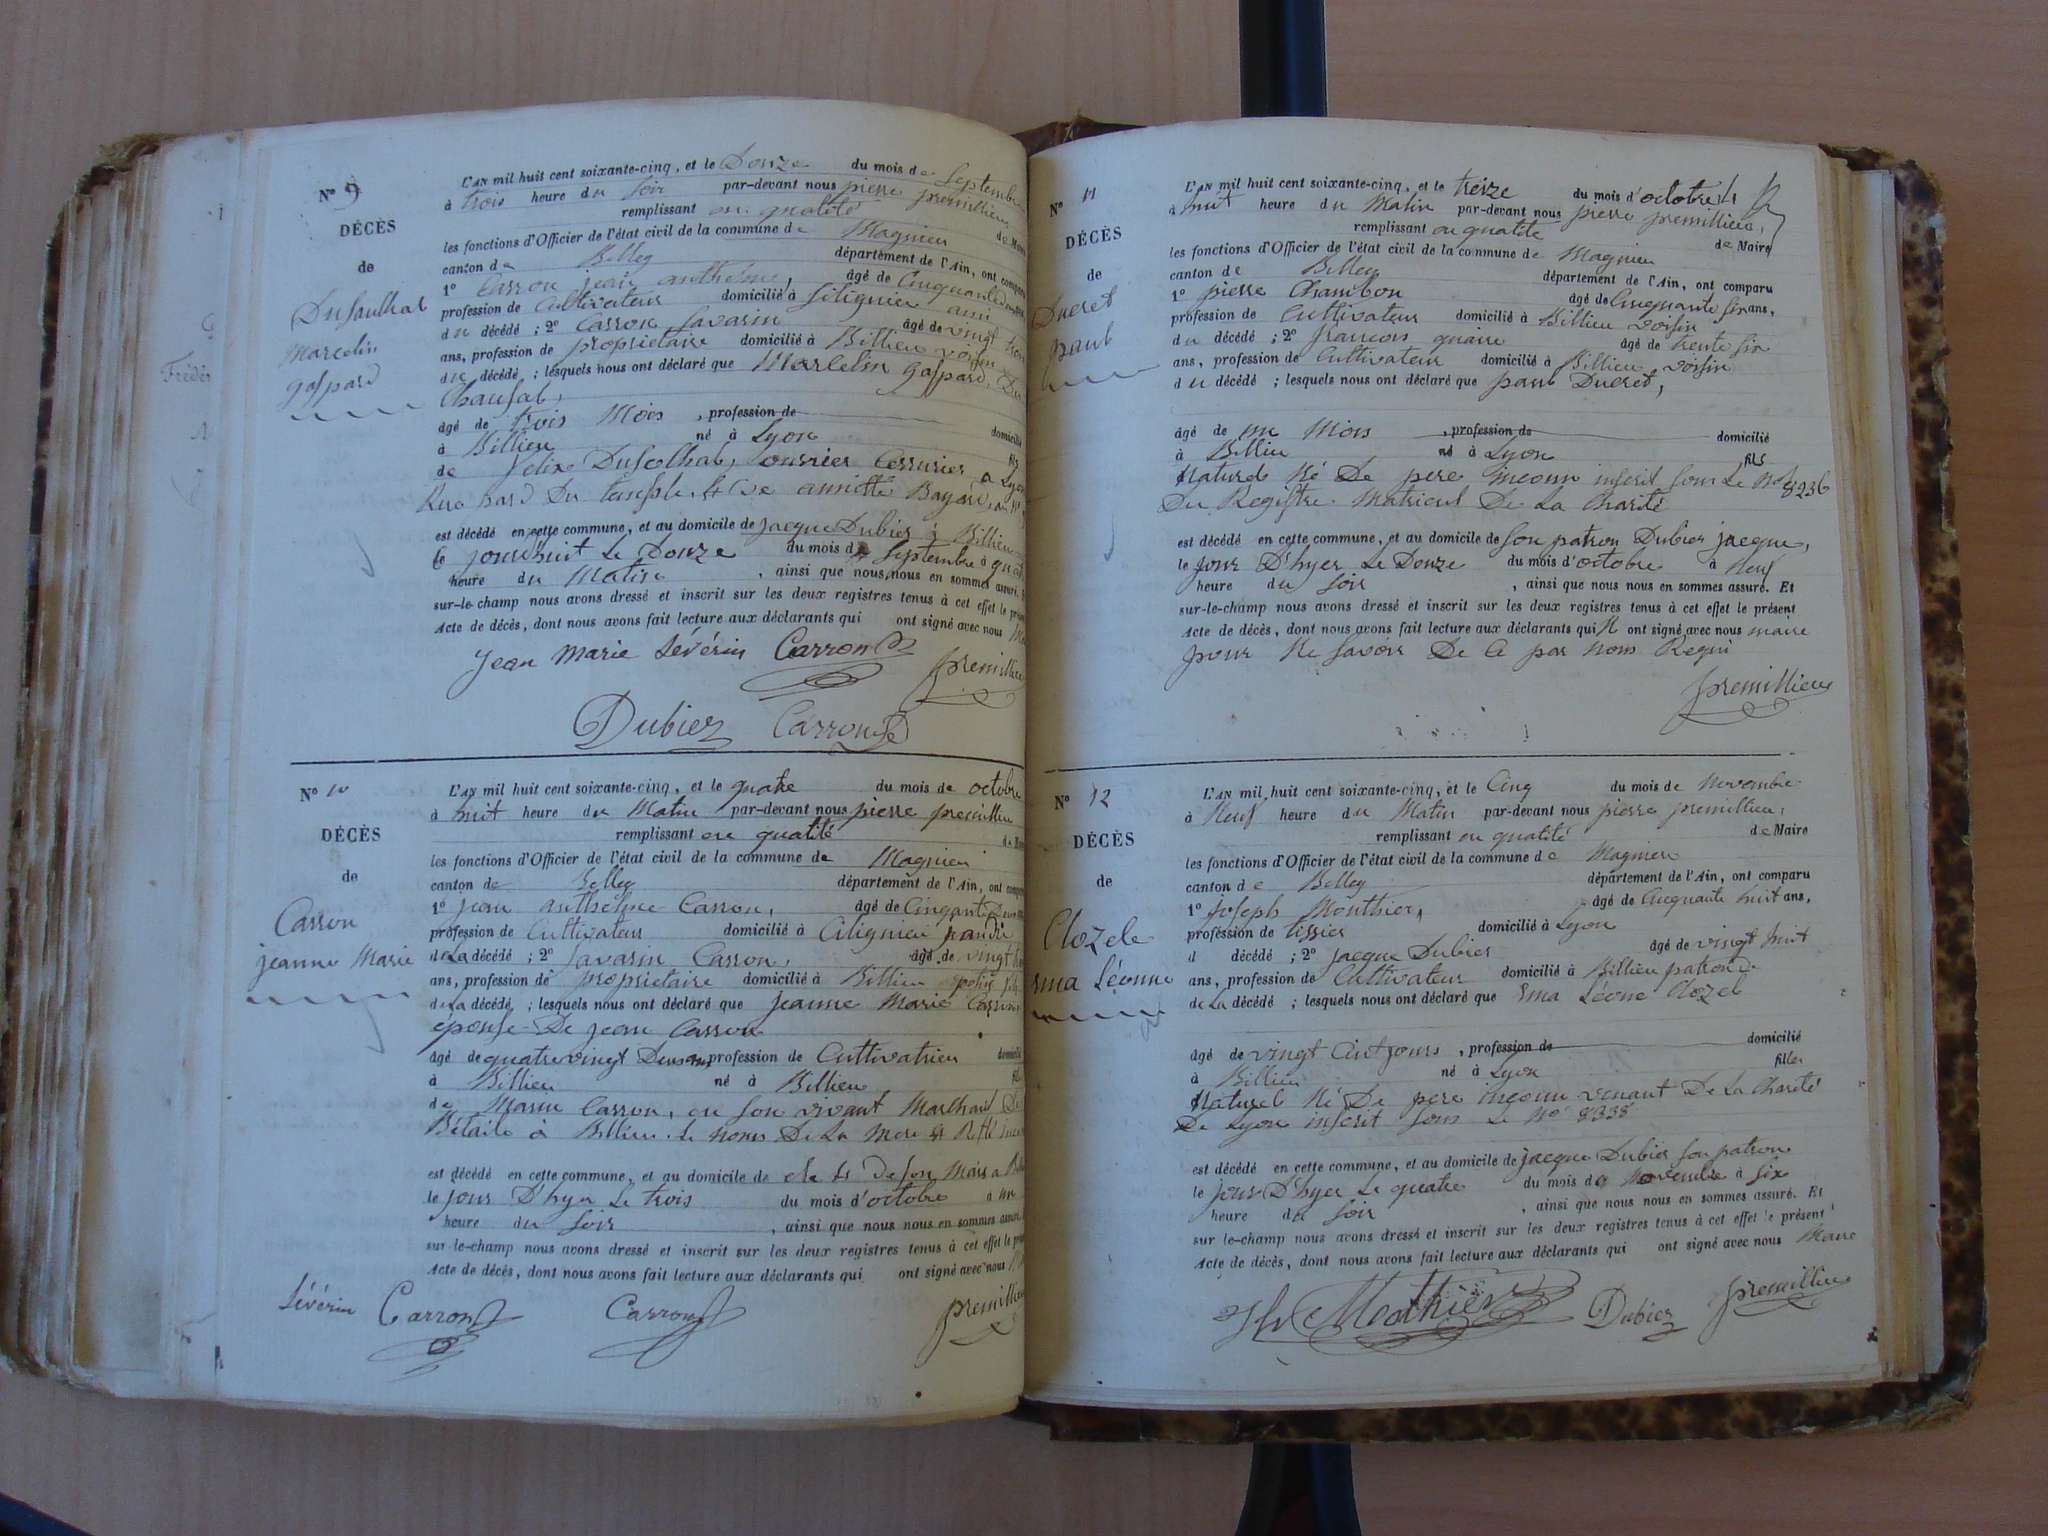 N° 9
DÉCÈS
de
Marcelin
gaspard
L'AN mil huit cent soixante-cinq, et le Douze du mois de Septembre
à trois heure du soir par-devant nous pierre premillieu
remplissant en qualité de
les fonctions d'Officier de l'état civil de la commune de Magnieu
canton de Belley département de l'Ain, ont comparu
1° Carron jean anthelme, âgé de Cinquante
profession de Cultivateur domicilié à ami
du décédé ; 2° Carron Savarin âgé de vingt
ans, profession de propriétaire domicilié à Billieu voisin
du décédé ; lesquels nous ont déclaré que Marcelin gaspard Du
Chaufal,
âgé de trois Mois , profession de domicilié
à Billieu né à Lyon fils
de felix ouvrier à Lyon
Rue du temple et de
est décédé en cette commune, et au domicile de jacque Dubier à Billieu
le jourdhuit Le Douze du mois de Septembre à
heure du Matin , ainsi que nous nous en sommes assuré.
sur-le-champ nous avons dressé et inscrit sur les deux registres tenus à cet effet le
Acte de décès, dont nous avons fait lecture aux déclarants qui ont signé avec nous
Jean Marie Sévérin Carron premillieu
Dubiez Carron
N° 10
DÉCÈS
de
Carron
jeanne Marie
L'AN mil huit cent soixante-cinq, et le quatre du mois de octobre
à huit heure du Matin par-devant nous pierre premillieu
remplissant en qualité de
les fonctions d'Officier de l'état civil de la commune de Magnieu
canton de Belley département de l'Ain, ont
1° jean anthelme Carron, âgé de
profession de Cultivateur domicilié à
de La décédé ; 2° Savarin Carron, âgé de vingt
ans, profession de propriétaire domicilié à Billieu
de La décédé ; lesquels nous ont déclaré que jeanne Marie Carron
épouse De jean Carron
âgé de quatre vingt Deux ans profession de Cultivatrice
à Billieu né à Billieu
de Carron, en son vivant Marchand De
Bétaile à Billieu. Le noms De La Mere
est décédé en cette commune, et au domicile de
le jour D'hyer Le trois du mois d'octobre à
heure du soir , ainsi que nous nous en sommes
sur-le-champ nous avons dressé et inscrit sur les deux registres tenus à cet effet le
Acte de décès, dont nous avons fait lecture aux déclarants qui ont signé avec nous
Sévérin Carron Carron premillieu
N° 11
DÉCÈS
de
Ducret
paul
L'AN mil huit cent soixante-cinq, et le treize du mois d'octobre
à huit heure du Matin par-devant nous pierre premillieu,
remplissant en qualité de Maire
les fonctions d'Officier de l'état civil de la commune de Magnieu
canton de Belley département de l'Ain, ont comparu
1° pierre Chambon âgé de Cinquante six ans,
profession de Cultivateur domicilié à Billieu voisin
du décédé ; 2° francois âgé de trente six
ans, profession de Cultivateur domicilié à Billieu voisin
du décédé ; lesquels nous ont déclaré que paul Ducret,
âgé de un Mois , profession de domicilié
à Billieu né à Lyon fils
Naturel Né De pere inconu inscrit sous Le N° 8236
Du Registre Matricul De La Charité
est décédé en cette commune, et au domicile de son patron Dubier jacque,
le jour D'hyer Le Douze du mois d'octobre à Neuf
heure du soir , ainsi que nous nous en sommes assuré. Et
sur-le-champ nous avons dressé et inscrit sur les deux registres tenus à cet effet le présent
Acte de décès, dont nous avons fait lecture aux déclarants qui N ont signé avec nous maire
pour Ne savoir De Ce par nous Requi
premillieu
N° 12
DÉCÈS
de
Clozel
Léonne
L'AN mil huit cent soixante-cinq, et le Cinq du mois de Novembre
à Neuf heure du Matin par-devant nous pierre premillieu,
remplissant en qualité de Maire
les fonctions d'Officier de l'état civil de la commune de Magnieu
canton de Belley département de l'Ain, ont comparu
1° Joseph Monthier, âgé de Cinquante huit ans,
profession de tissier domicilié à Lyon
d décédé ; 2° jacque Dubier âgé de vingt huit
ans, profession de Cultivateur domicilié à Billieu patron
de La décédé ; lesquels nous ont déclaré que Léone Clozel
âgé de vingt Cint jours , profession de domicilié
à Billieu né à Lyon fille
Naturel Né De pere inconu venant De La Charité
De Lyon inscrit sous Le N° 8338
est décédé en cette commune, et au domicile de jacque Dubier son patron
le jour D'hyer Le quatre du mois de Novembre à six
heure du soir , ainsi que nous nous en sommes assuré. Et
sur-le-champ nous avons dressé et inscrit sur les deux registres tenus à cet effet le présent
Acte de décès, dont nous avons fait lecture aux déclarants qui ont signé avec nous Maire
Mothier Dubiez premillieu